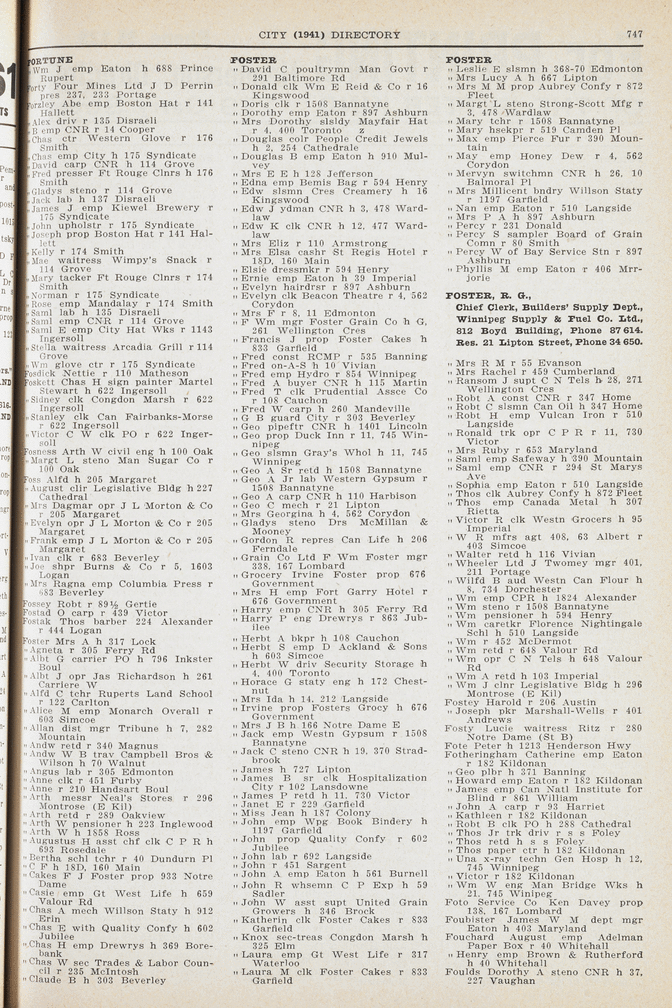 CITY (1941) DIRECTORY
747
FORTUNE
" Wm J emp Eaton h 688 Prince
Rupert
Forty Four Mines Ltd J D Perrin
pres 237, 233 Portage
Forzley Abe emp Boston Hat r 141
Hallett
" Alex driv r 135 Disraeli
" B emp CNR r 14 Cooper
" Chas ctr Western Glove r 176
Smith
" Chas emp City h 175 Syndicate
" David carp CNR h 114 Grove
" Fred presser Ft Rouge Clnrs h 176
Smith
" Gladys steno r 114 Grove
" Jack lab h 137 Disraeli
" James J emp Kiewel Brewery r
175 Syndicate
" John upholstr r 175 Syndicate
" Joseph prop Boston Hat r 141 Hal-
lett
" Kelly r 174 Smith
" Mae waitress Wimpy's Snack r
114 Grove
" Mary tacker Ft Rouge Clnrs r 174
Smith
" Norman r 175 Syndicate
" Rose emp Mandalay r 174 Smith
" Saml lab h 135 Disraeli
" Saml emp CNR r 114 Grove
" Saml E emp City Hat Wks r 1143
Ingersoll
" Stella waitress Arcadia Grill r 114
Grove
" Wm glove ctr r 175 Syndicate
Fosdick Nettie r 110 Matheson
Foskett Chas H sign painter Martel
Stewart h 622 Ingersoll
" Sidney clk Congdon Marsh r 622
Ingersoll
" Stanley clk Can Fairbanks-Morse
r 622 Ingersoll
" Victor C W clk PO r 622 Inger-
soll
Fosness Arth W civil eng h 100 Oak
" Margt L steno Man Sugar Co r
100 Oak
Foss Alfd h 205 Margaret
" August clir Legislative Bldg h 227
Cathedral
" Mrs Dagmar opr J L Morton & Co
r 205 Margaret
" Evelyn opr J L Morton & Co r 205
Margaret
" Frank emp J L Morton & Co r 205
Margaret
" Ivan clk r 683 Beverley
" Joe shpr Burns & Co r 5, 1603
Logan
" Mrs Ragna emp Columbia Press r
683 Beverley
Fossey Robt r 89½ Gertie
Fostad O carp r 439 Victor
Fostak Thos barber 224 Alexander
r 444 Logan
Foster Mrs A h 317 Lock
" Agneta r 305 Ferry Rd
" Albt G carrier PO h 796 Inkster
Boul
" Albt J opr Jas Richardson h 261
Carriere W
" Alfd C tchr Ruperts Land School
r 122 Carlton
" Alice M emp Monarch Overall r
603 Simcoe
" Allan dist mgr Tribune h 7, 282
Mountain
" Andw retd r 340 Magnus
" Andw W B trav Campbell Bros &
Wilson h 70 Walnut
" Angus lab r 305 Edmonton
" Anne clk r 451 Furby
" Anne r 210 Handsart Boul
" Arth messr Neal's Stores r 296
Montrose (E Kil)
" Arth retd r 289 Oakview
" Arth W pensioner h 223 Inglewood
" Arth W h 1858 Ross
" Augustus H asst chf clk C P R h
693 Rosedale
" Bertha schl tchr r 40 Dundurn Pl
" C F h 18D, 160 Main
" Cakes F J Foster prop 933 Notre
Dame
" Casie emp Gt West Life h 659
Valour Rd
" Chas A mech Willson Staty h 912
Erin
" Chas E with Quality Confy h 602
Jubilee
" Chas H emp Drewrys h 369 Bore-
bank
" Chas W sec Trades & Labor Coun-
cil r 235 McIntosh
" Claude B h 303 Beverley
FOSTER
" David C poultrymn Man Govt r
291 Baltimore Rd
" Donald clk Wm E Reid & Co r 16
Kingswood
" Doris clk r 1508 Bannatyne
" Dorothy emp Eaton r 897 Ashburn
" Mrs Dorothy slsldy Mayfair Hat
r 4, 400 Toronto
" Douglas colr People Credit Jewels
h 2, 254 Cathedrale
" Douglas B emp Eaton h 910 Mul-
vey
" Mrs E E h 128 Jefferson
" Edna emp Bemis Bag r 594 Henry
" Edw slsmn Cres Creamery h 16
Kingswood
" Edw J ydman CNR h 3, 478 Ward-
law
" Edw K clk CNR h 12, 477 Ward-
law
" Mrs Eliz r 110 Armstrong
" Mrs Elsa cashr St Regis Hotel r
18D, 160 Main
" Elsie dressmkr r 594 Henry
" Ernie emp Eaton h 39 Imperial
" Evelyn hairdrsr r 897 Ashburn
" Evelyn clk Beacon Theatre r 4, 562
Corydon
" Mrs F r 8, 11 Edmonton
" F Wm mgr Foster Grain Co h G,
261 Wellington Cres
" Francis J prop Foster Cakes h
833 Garfield
" Fred const RCMP r 535 Banning
" Fred on-A-S h 10 Vivian
" Fred emp Hydro r 854 Winnipeg
" Fred A buyer CNR h 115 Martin
" Fred T clk Prudential Assce Co
r 108 Cauchon
" Fred W carp h 260 Mandeville
" G B guard City r 303 Beverley
" Geo pipeftr CNR h 1401 Lincoln
" Geo prop Duck Inn r 11, 745 Win-
nipeg
" Geo slsmn Gray's Whol h 11, 745
Winnipeg
" Geo A Sr retd h 1508 Bannatyne
" Geo A Jr lab Western Gypsum r
1508 Bannatyne
" Geo A carp CNR h 110 Harbison
" Geo C mech r 21 Lipton
" Mrs Georgina h 4, 562 Corydon
" Gladys steno Drs McMillan &
Mooney
" Gordon R repres Can Life h 206
Ferndale
" Grain Co Ltd F Wm Foster mgr
338, 167 Lombard
" Grocery Irvine Foster prop 676
Government
" Mrs H emp Fort Garry Hotel r
676 Government
" Harry emp CNR h 305 Ferry Rd
" Harry P eng Drewrys r 863 Jub-
ilee
" Herbt A bkpr h 108 Cauchon
" Herbt S emp D Ackland & Sons
h 603 Simcoe
" Herbt W driv Security Storage h
4, 400 Toronto
" Horace G staty eng h 172 Chest-
nut
" Mrs Ida h 14, 212 Langside
" Irvine prop Fosters Grocy h 676
Government
" Mrs J B h 166 Notre Dame E
" Jack emp Westn Gypsum r 1508
Bannatyne
" Jack C steno CNR h 19, 370 Strad-
brook
" James h 727 Lipton
" James B sr clk Hospitalization
City r 102 Lansdowne
" James P retd h 11, 730 Victor
" Janet E r 229 Garfield
" Miss Jean h 187 Colony
" John emp Wpg Book Bindery h
1197 Garfield
" John prop Quality Confy r 602
Jubilee
" John lab r 692 Langside
" John r 451 Sargent
" John A emp Eaton h 561 Burnell
" John R whsemn C P Exp h 59
Sadler
" John W asst supt United Grain
Growers h 346 Brock
" Katherin clk Foster Cakes r 833
Garfield
" Knox sec-treas Congdon Marsh h
325 Elm
" Laura emp Gt West Life r 317
Waterloo
" Laura M clk Foster Cakes r 833
Garfield
FOSTER
" Leslie E slsmn h 368-70 Edmonton
" Mrs Lucy A h 667 Lipton
" Mrs M M prop Aubrey Confy r 872
Fleet
" Margt L steno Strong-Scott Mfg r
3, 478 Wardlaw
" Mary tchr r 1508 Bannatyne
" Mary hsekpr r 519 Camden Pl
" Max emp Pierce Fur r 390 Moun-
tain
" May emp Honey Dew r 4, 562
Corydon
" Mervyn switchmn CNR h 26, 10
Balmoral Pl
" Mrs Millicent bndry Willson Staty
r 1197 Garfield
" Nan emp Eaton r 510 Langside
" Mrs P A h 897 Ashburn
" Percy r 231 Donald
" Percy S sampler Board of Grain
Comn r 80 Smith
" Percy W of Bay Service Stn r 897
Ashburn
" Phyllis M emp Eaton r 406 Mrr-
jorie
FOSTER, R. G.,
Chief Clerk, Builders' Supply Dept.,
Winnipeg Supply & Fuel Co. Ltd.,
812 Boyd Building, Phone 87 614.
Res. 21 Lipton Street, Phone 34 650.
" Mrs R M r 55 Evanson
" Mrs Rachel r 459 Cumberland
" Ransom J supt C N Tels h 28, 271
Wellington Cres
" Robt A const CNR r 347 Home
" Robt C slsmn Can Oil h 347 Home
" Robt H emp Vulcan Iron r 510
Langside
" Ronald trk opr C P R r 11, 730
Victor
" Mrs Ruby r 653 Maryland
" Saml emp Safeway h 390 Mountain
" Saml emp CNR r 294 St Marys
Ave
" Sophia emp Eaton r 510 Langside
" Thos clk Aubrey Confy h 872 Fleet
" Thos emp Canada Metal h 307
Rietta
" Victor R clk Westn Grocers h 95
Imperial
" W R mfrs agt 408, 63 Albert r
403 Simcoe
" Walter retd h 116 Vivian
" Wheeler Ltd J Twomey mgr 401,
211 Portage
" Wilfd B aud Westn Can Flour h
8, 734 Dorchester
" Wm emp CPR h 1824 Alexander
" Wm steno r 1508 Bannatyne
" Wm pensioner h 594 Henry
" Wm caretkr Florence Nightingale
Schl h 510 Langside
" Wm r 452 McDermot
" Wm retd r 648 Valour Rd
" Wm opr C N Tels h 648 Valour
Rd
" Wm A retd h 103 Imperial
" Wm J clnr Legislative Bldg h 296
Montrose (E Kil)
Fostey Harold r 206 Austin
" Joseph pkr Marshall-Wells r 401
Andrews
Fosty Lucie waitress Ritz r 280
Notre Dame (St B)
Fote Peter h 1213 Henderson Hwy
Fotheringham Catherine emp Eaton
r 182 Kildonan
" Geo plbr h 371 Banning
" Howard emp Eaton r 182 Kildonan
" James emp Can Natl Institute for
Blind r 861 William
" John A carp r 93 Harriet
" Kathleen r 182 Kildonan
" Robt B clk PO h 288 Cathedral
" Thos Jr trk driv r s s Foley
" Thos retd h s s Foley
" Thos paper ctr h 182 Kildonan
" Una x-ray techn Gen Hosp h 12,
745 Winnipeg
" Victor r 182 Kildonan
" Wm W eng Man Bridge Wks h
21, 745 Winpeg
Foto Service Co Ken Davey prop
138, 167 Lombard
Foubister James W M dept mgr
Eaton h 403 Maryland
Fouchard August emp Adelman
Paper Box r 40 Whitehall
" Henry emp Brown & Rutherford
h 40 Whitehall
Foulds Dorothy A steno CNR h 37,
227 Vaughan